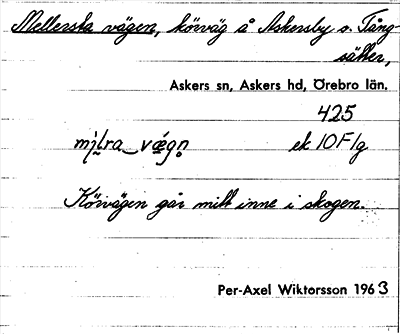 Mellersta vägen, körväg å Askersby o. Tång-
säker,
Askers sn, Askers hd, Örebro län.
425
ek 10F1g
Körvägen går mitt inne i skogen.
Per-Axel Wiktorsson 1963